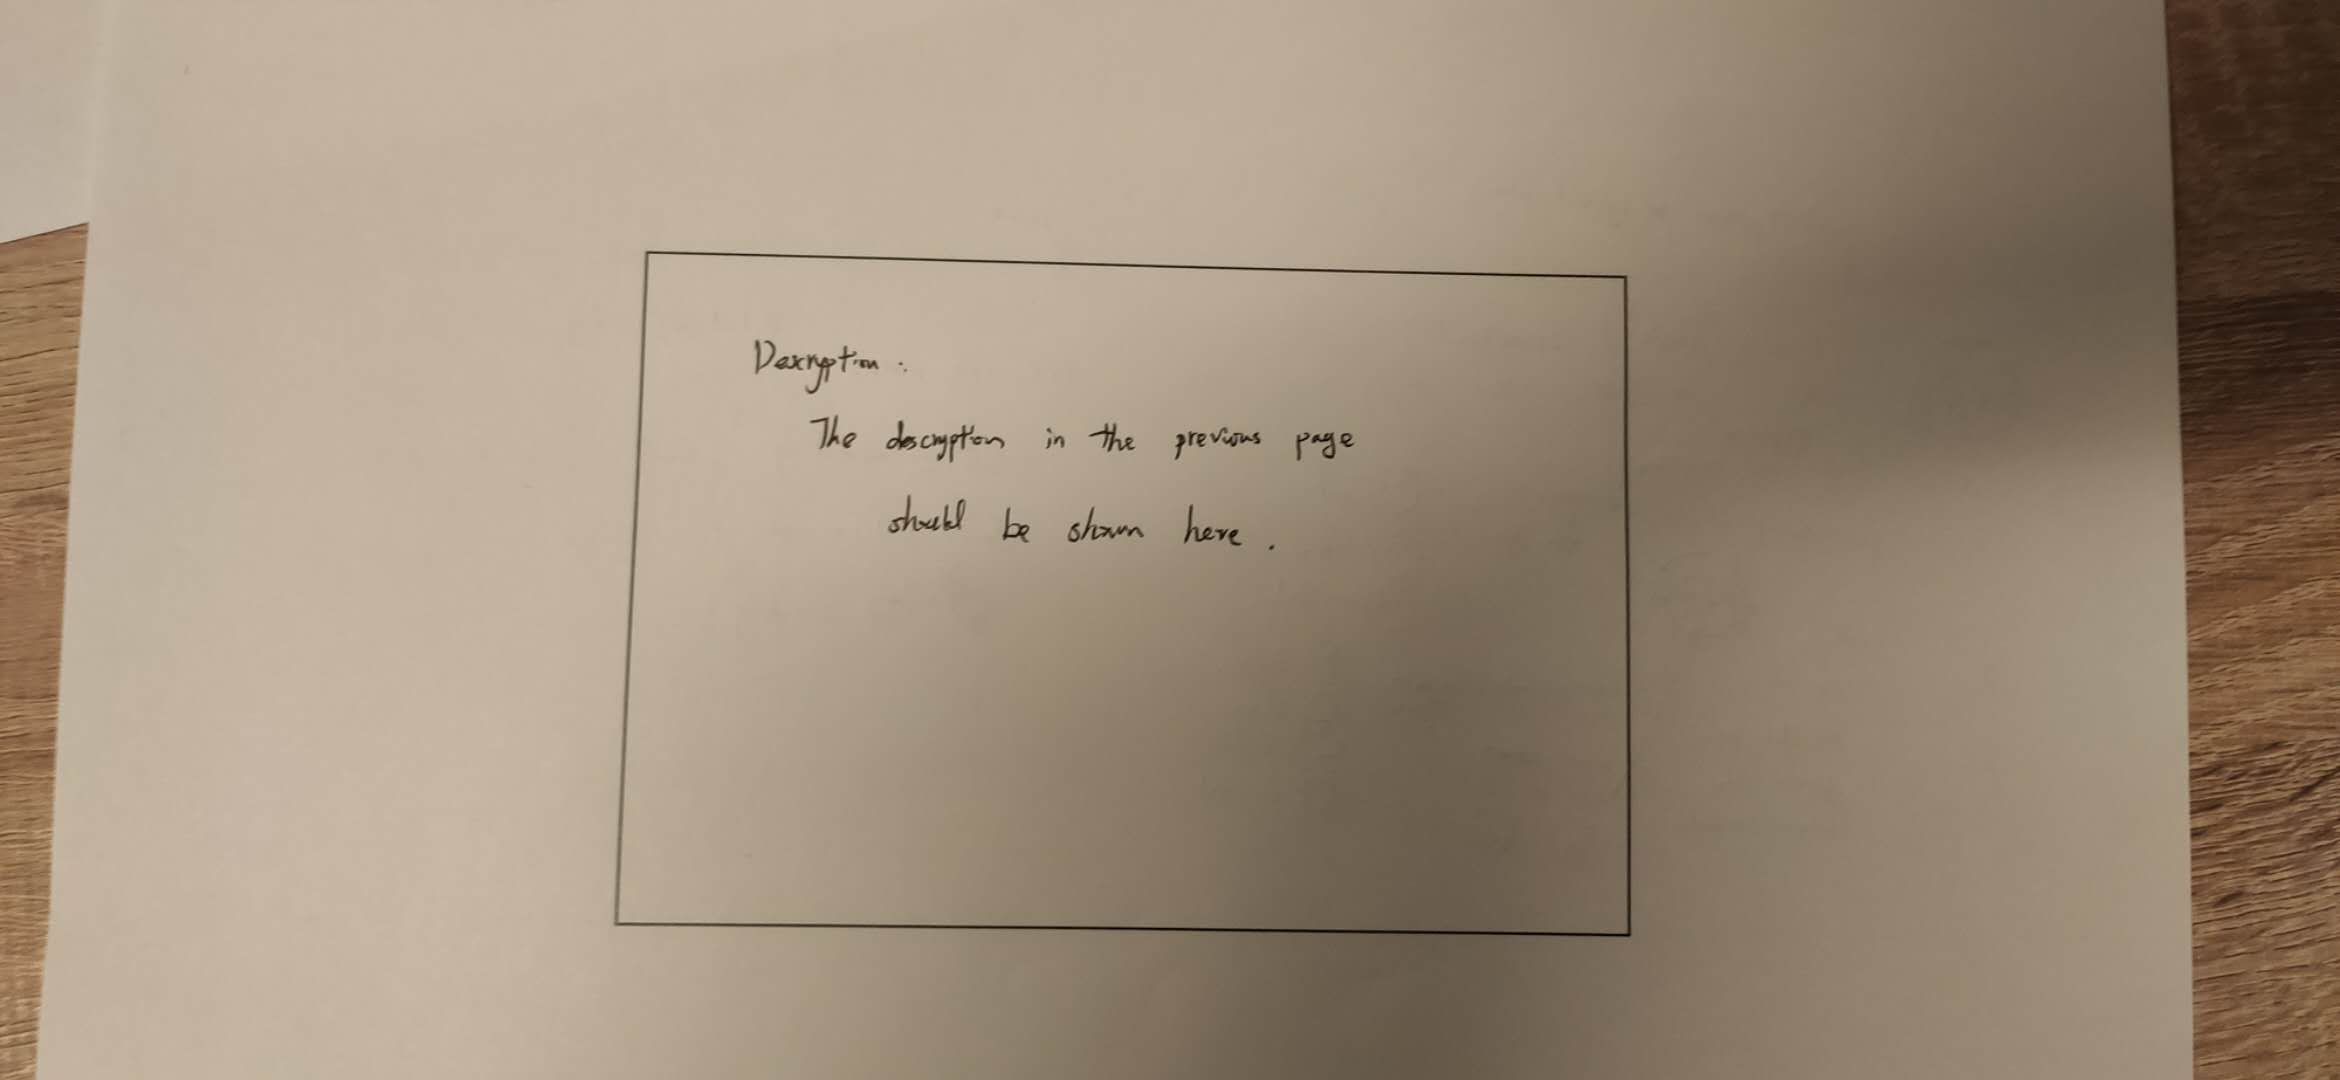 Descryption :
The descryption in the previous page
should be shown here .